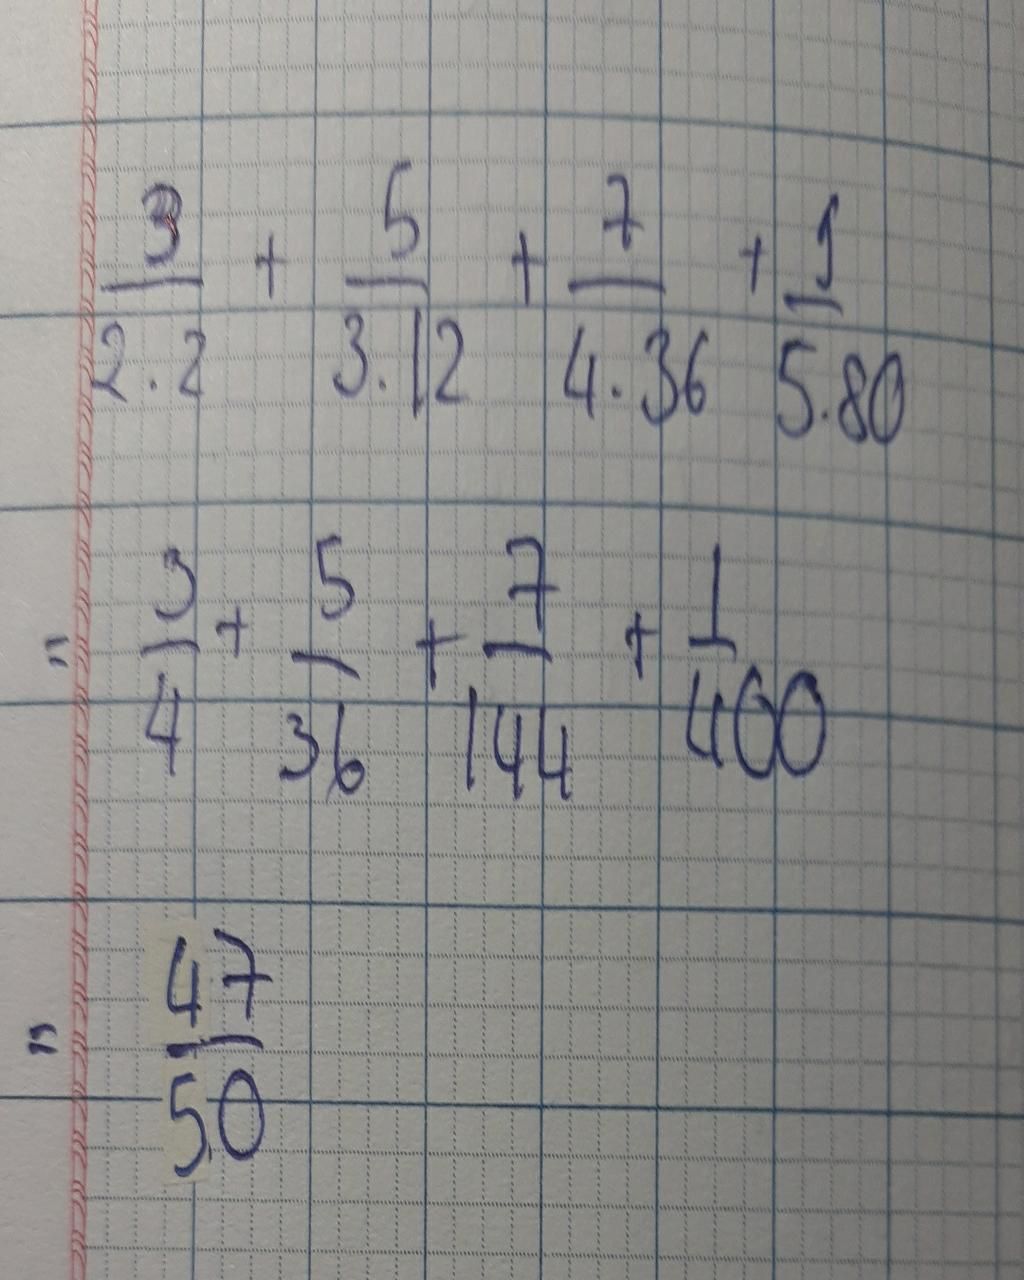 3/2.2 + 5/3.12 + 7/4.36 + 1/5.80
= 3/4 + 5/36 + 7/144 + 1/400
= 47/50